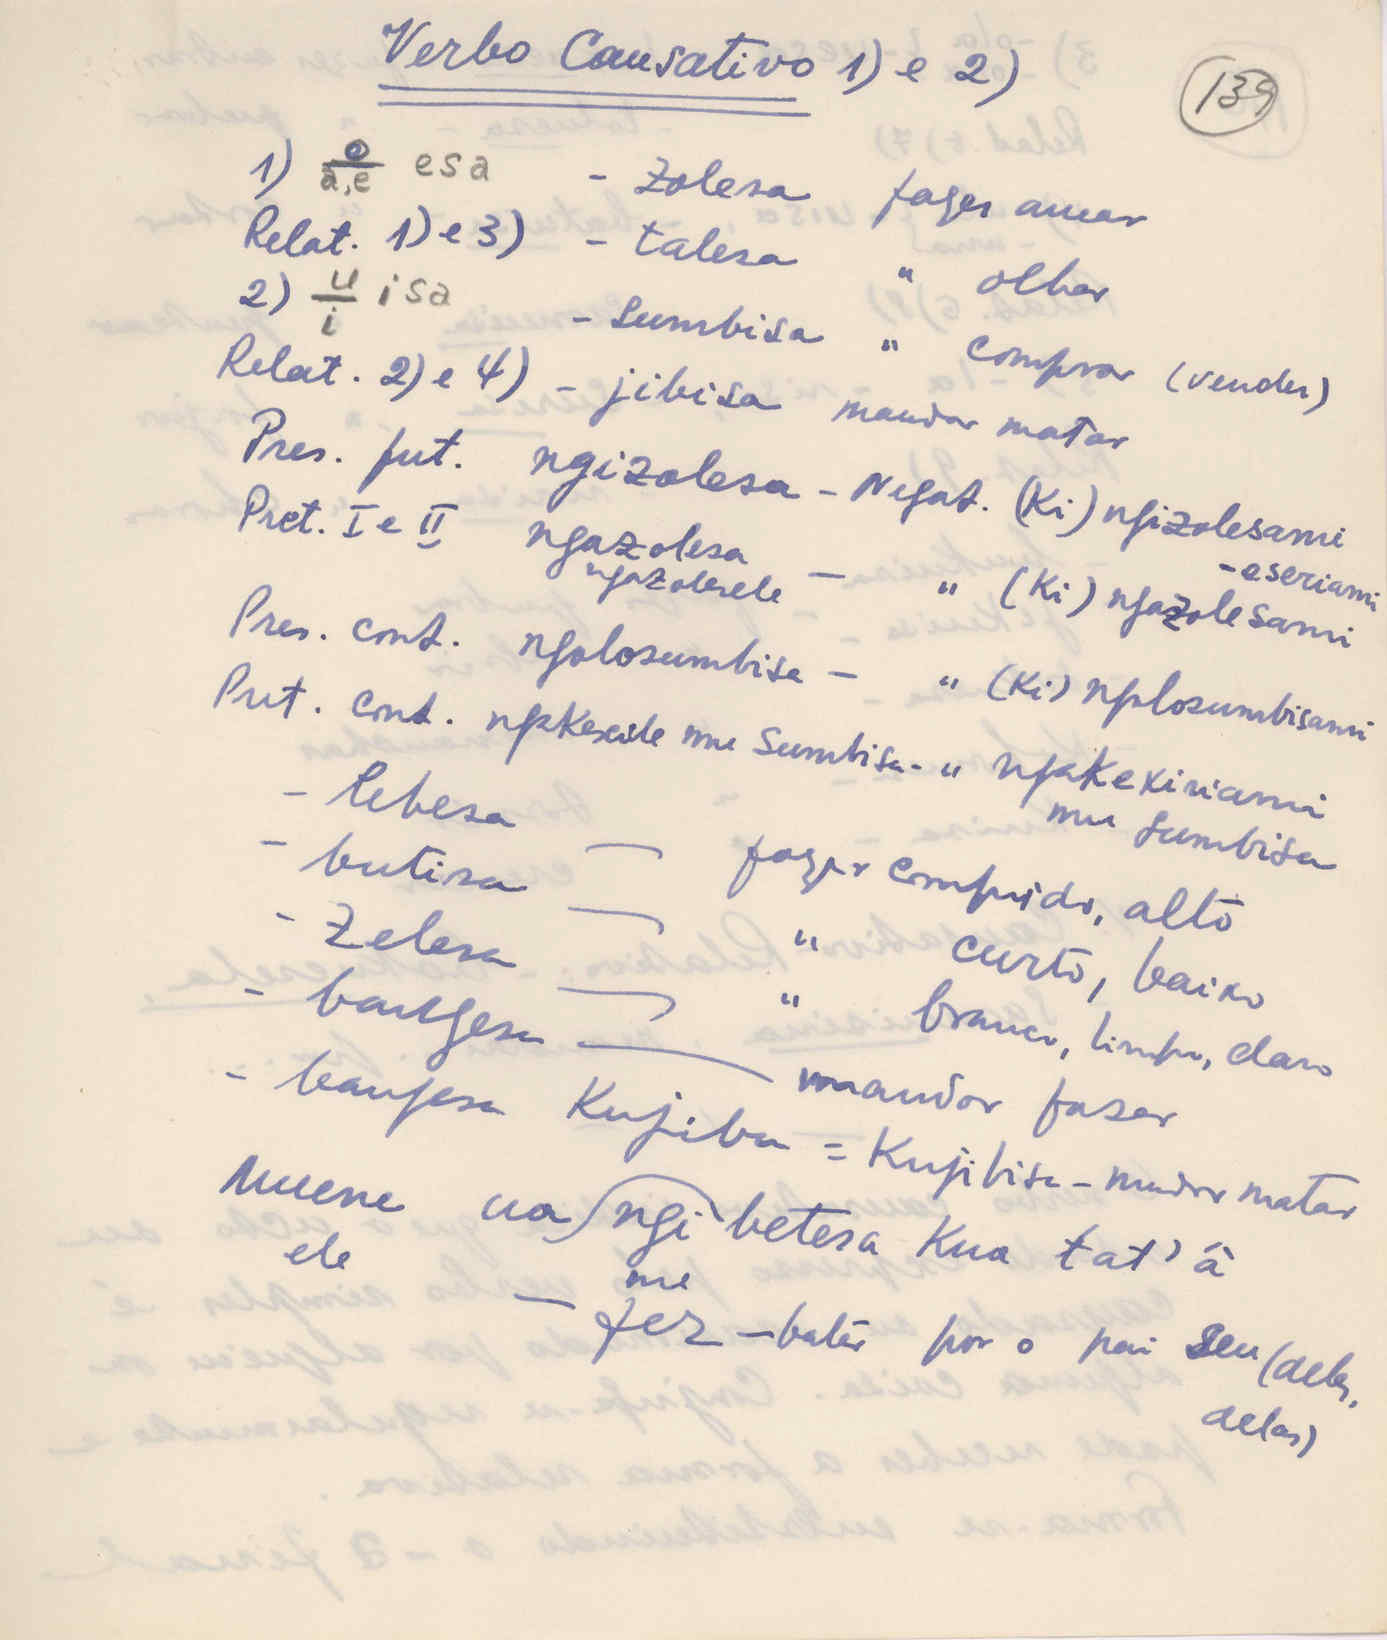 Verbo Causativo 1) e 2)
139
1) o/a,e esa - zolesa fazer amar
Relat. 1) e 3) - talesa " olhar
2) u/i isa - sumbisa " comprar (vender)
Relat. 2) e 4) - jibisa mandar matar
Pres. fut. ngizolesa - Negat. (Ki) ngizolesami
Pret. I e II ngazolesa - " (Ki) ngazolesami
ngazolesele -eseriami
Pres. cont. ngolosumbisa - " (Ki) ngolosumbisami
Pret. cont. ngakexile mu sumbisa - " ngakexiriami
mu sumbisa
- lebesa - fazer comprido, alto
- butisa - " curto, baixo
- zelesa - " branco, limpo, claro
- bangesa - mandar fazer
- bangesa Kujiba = Kujibisa - mandar matar
Muene ua ngi betesa Kua tat' â
ele me
- fez - bater por o pai seu (deles,
delas)